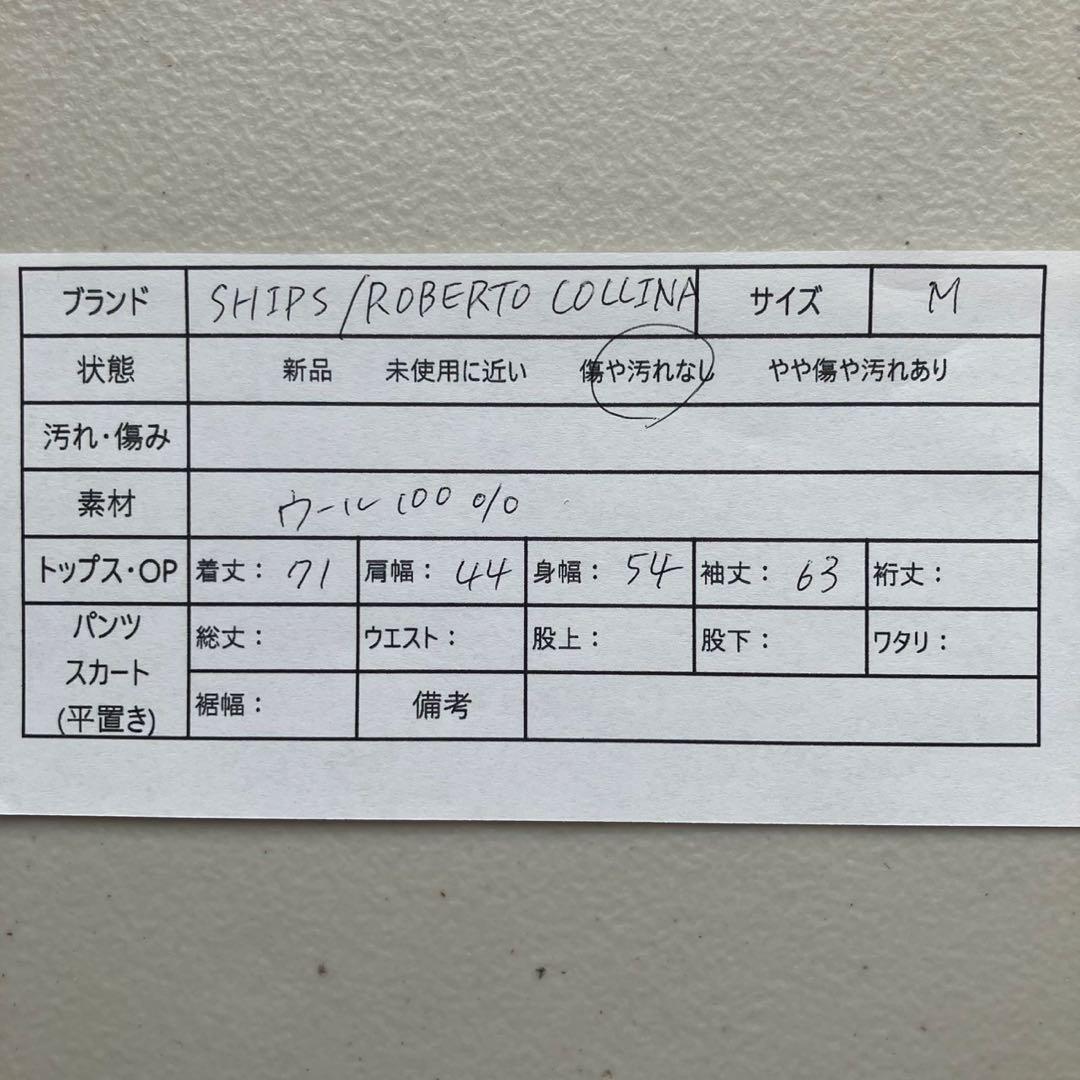 ブランド SHIPS/ROBERTO COLLINA サイズ M
状態 新品 未使用に近い 傷や汚れなし やや傷や汚れあり
汚れ・傷み
素材 ウール100%
トップス・OP 着丈: 71 肩幅: 44 身幅: 54 袖丈: 63 裄丈:
パンツ
スカート
(平置き)
総丈: ウエスト: 股上: 股下: ワタリ:
裾幅: 備考